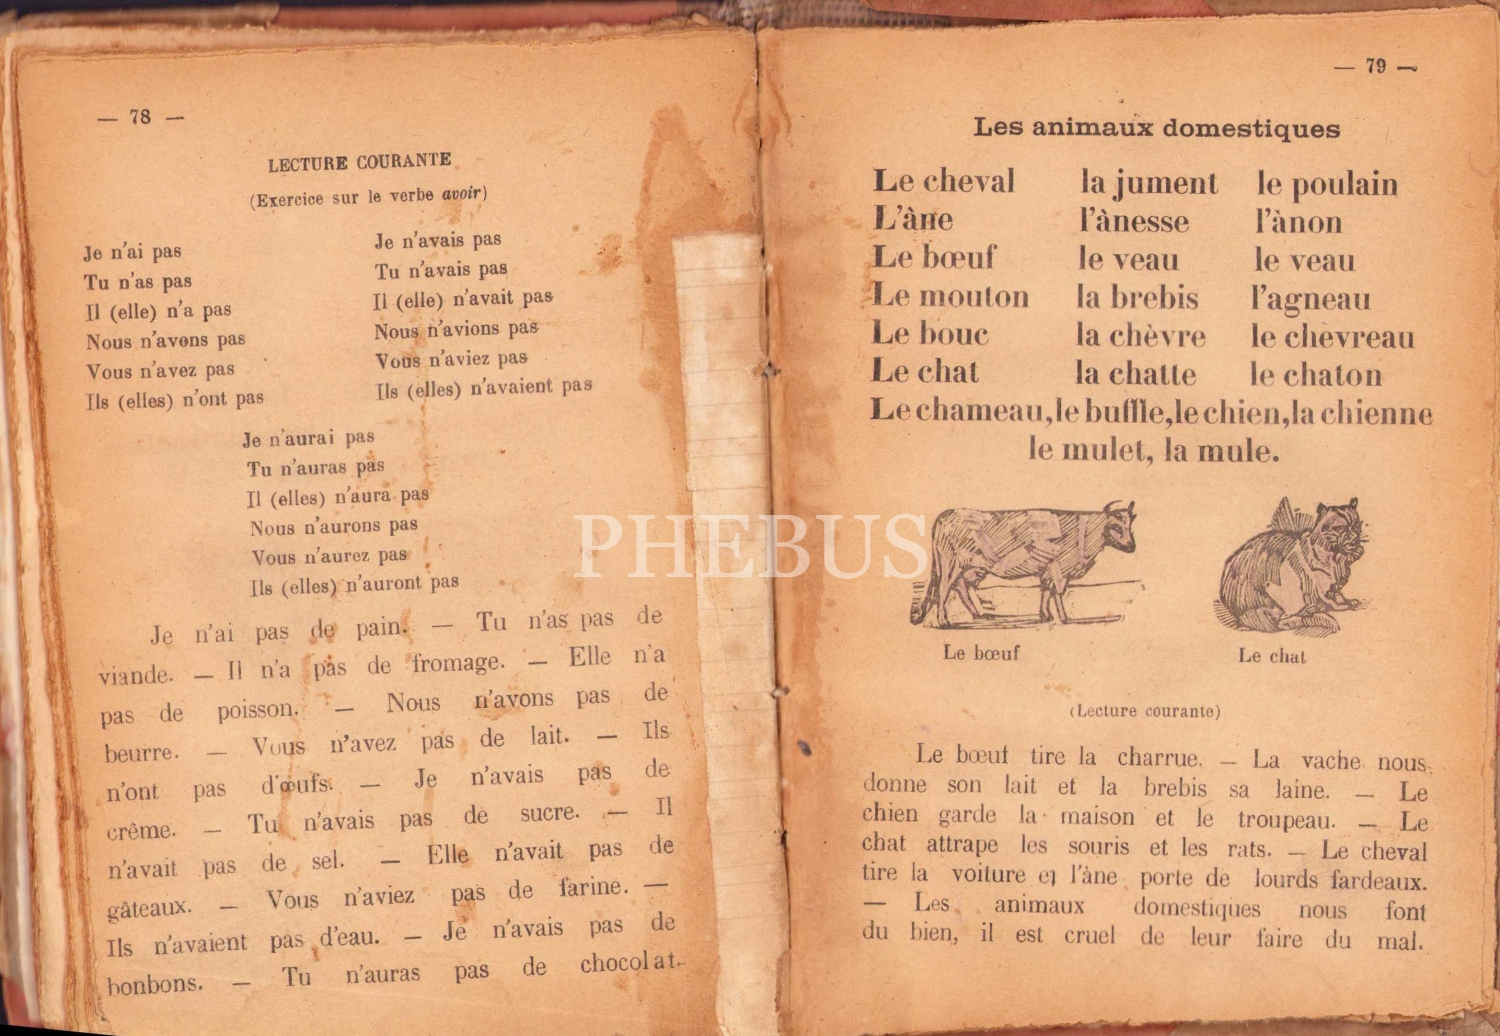 — 78 —
LECTURE COURANTE
(Exercice sur le verbe avoir)
Je n'ai pas
Tu n'as pas
Il (elle) n'a pas
Nous n'avons pas
Vous n'avez pas
Ils (elles) n'ont pas
Je n'avais pas
Tu n'avais pas
Il (elle) n'avait pas
Nous n'avions pas
Vous n'aviez pas
Ils (elles) n'avaient pas
Je n'aurai pas
Tu n'auras pas
Il (elles) n'aura pas
Nous n'aurons pas
Vous n'aurez pas
Ils (elles) n'auront pas
Je n'ai pas de pain. — Tu n'as pas de
viande. — Il n'a pas de fromage. — Elle n'a
pas de poisson. — Nous n'avons pas de
beurre. — Vous n'avez pas de lait. — Ils
n'ont pas d'œufs. — Je n'avais pas de
crême. — Tu n'avais pas de sucre. — Il
n'avait pas de sel. — Elle n'avait pas de
gâteaux. — Vous n'aviez pas de farine. —
Ils n'avaient pas d'eau. — Je n'avais pas de
bonbons. — Tu n'auras pas de chocolat.
— 79 —
Les animaux domestiques
Le cheval la jument le poulain
L'âne l'ànesse l'ànon
Le bœuf le veau le veau
Le mouton la brebis l'agneau
Le bouc la chèvre le chevreau
Le chat la chatte le chaton
Le chameau, le buffle, le chien, la chienne
le mulet, la mule.
Le bœuf
Le chat
(Lecture courante)
Le bœuf tire la charrue. — La vache nous
donne son lait et la brebis sa laine. — Le
chien garde la maison et le troupeau. — Le
chat attrape les souris et les rats. — Le cheval
tire la voiture et l'âne porte de lourds fardeaux.
— Les animaux domestiques nous font
du bien, il est cruel de leur faire du mal.
PHEBUS